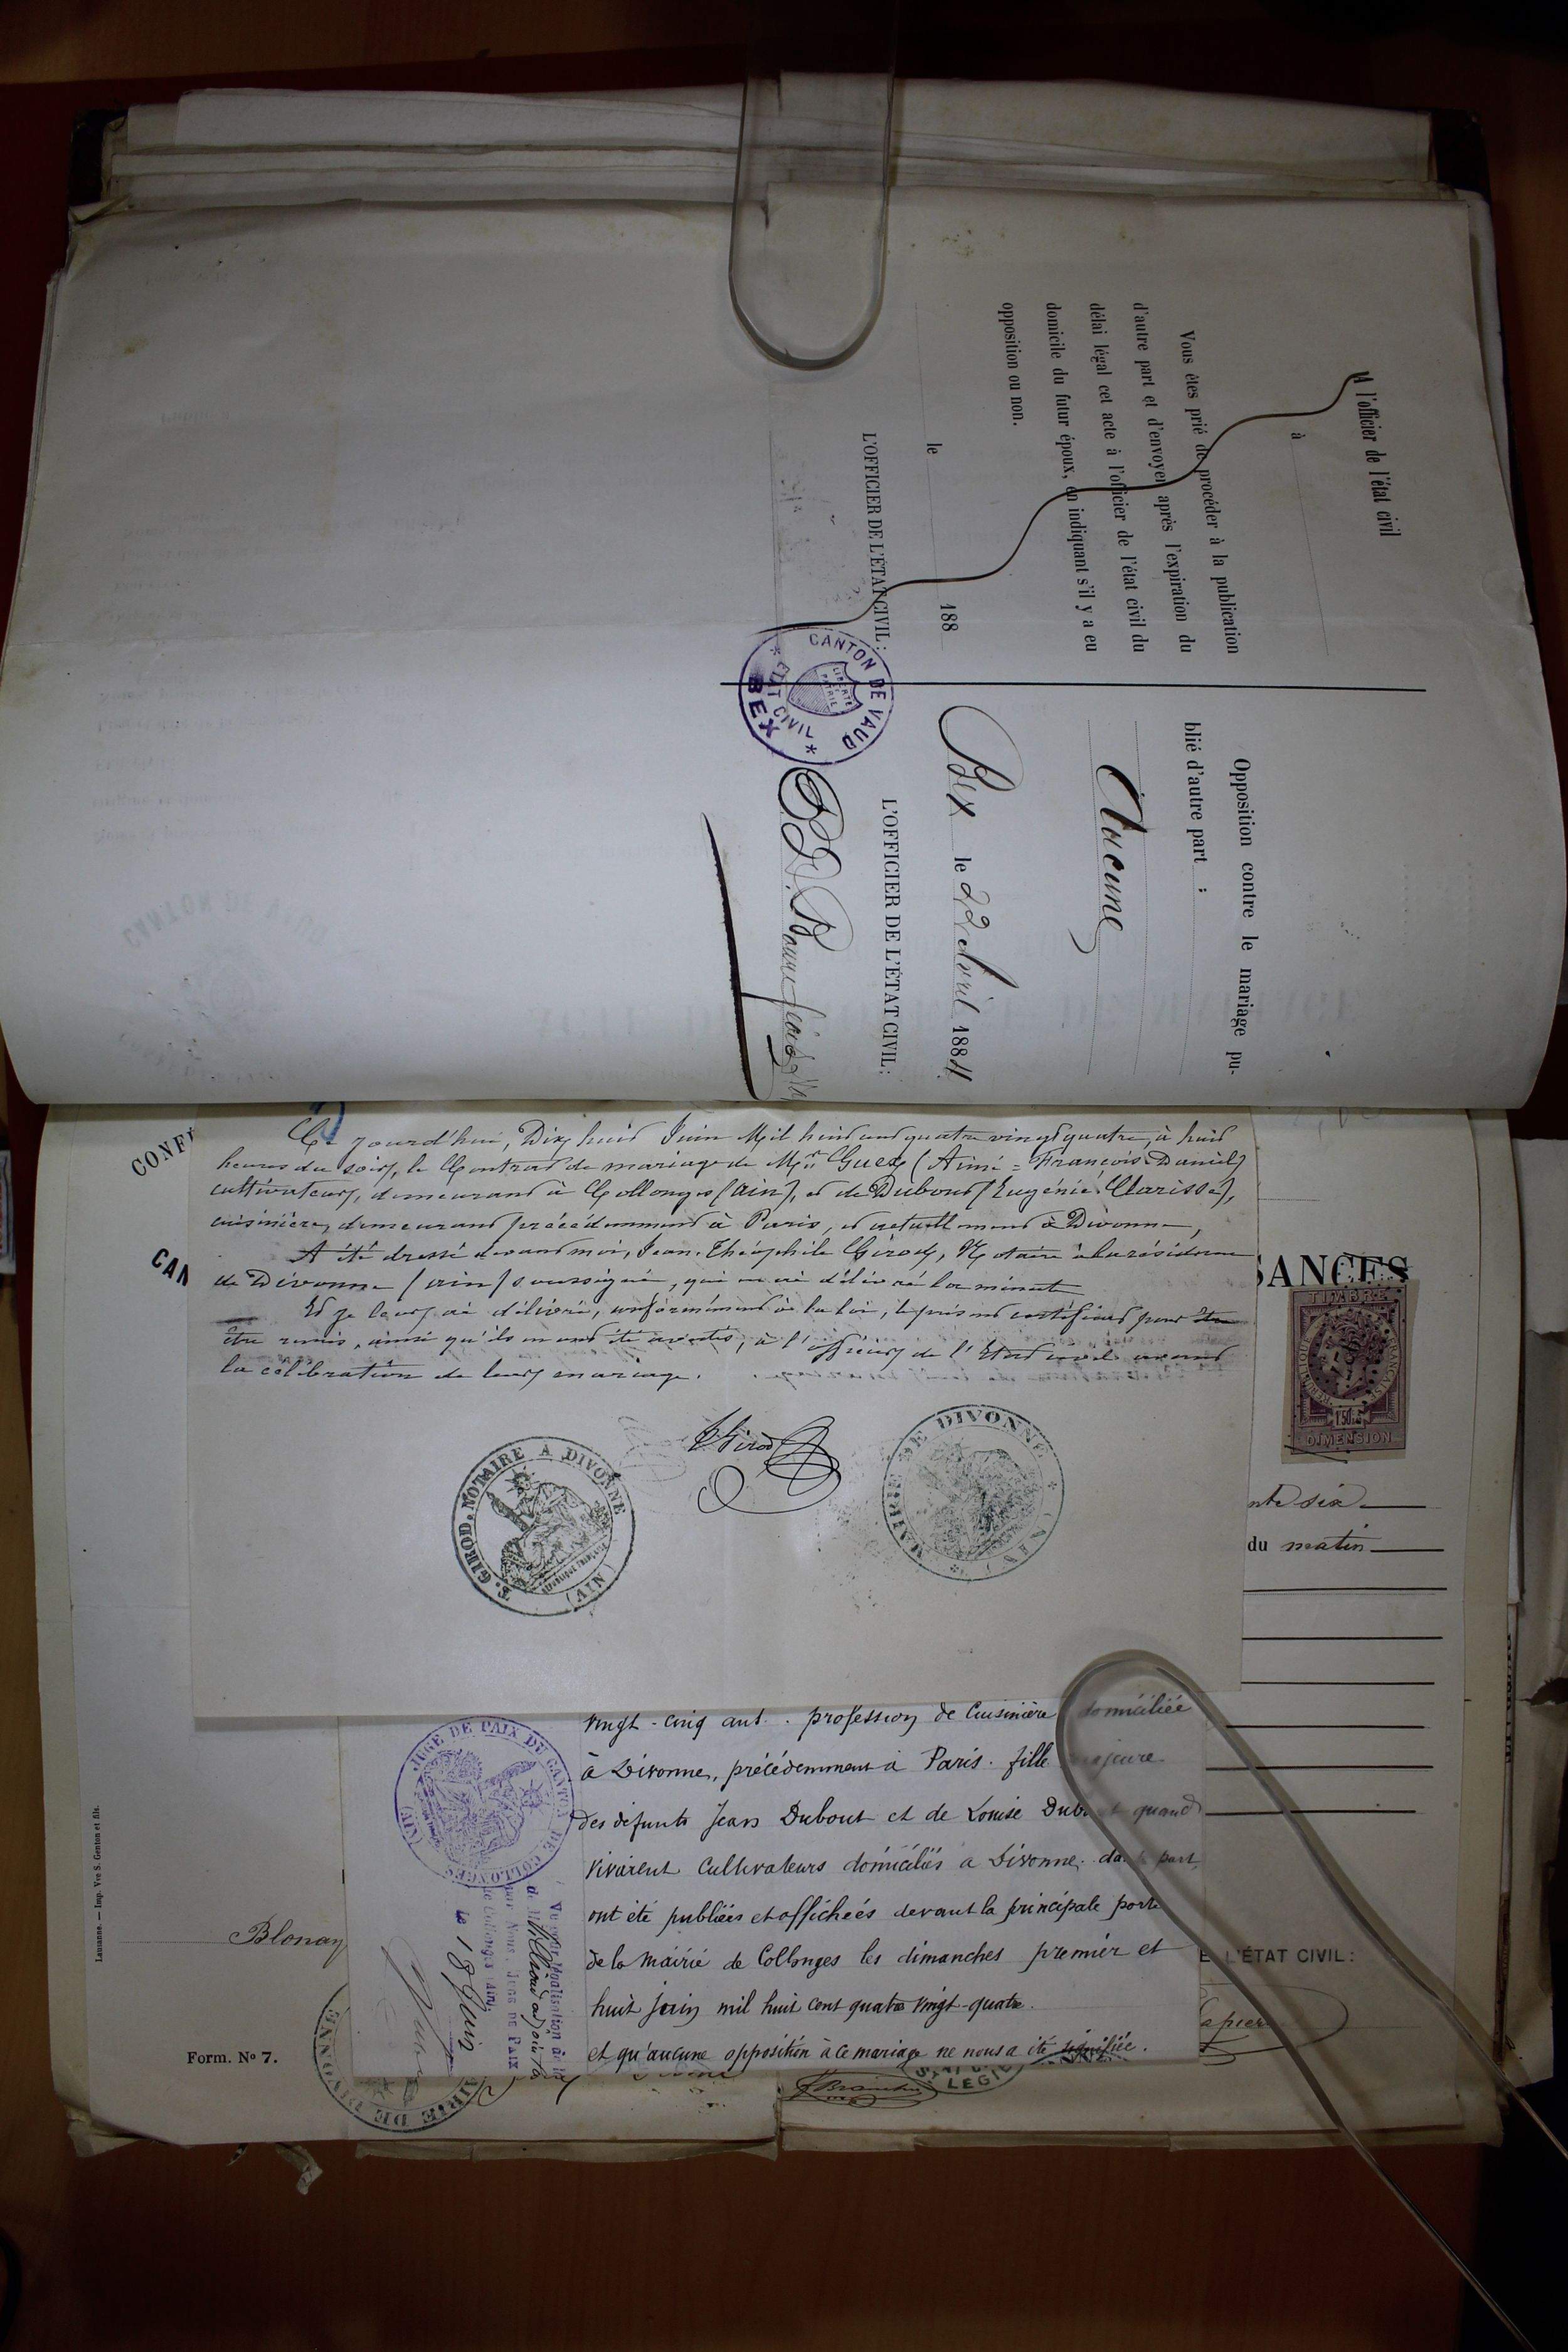 A l'officier de l'état civil
à
Vous êtes prié de procéder à la publication
d'autre part et d'envoyer après l'expiration du
délai légal cet acte à l'officier de l'état civil du
domicile du futur époux, en indiquant s'il y a eu
opposition ou non.
le 188
L'OFFICIER DE L'ÉTAT CIVIL :
CANTON DE VAUD
LIBERTÉ ET PATRIE
* ETAT CIVIL *
BEX
Opposition contre le mariage pu-
blié d'autre part :
Aucune
Bex le 22 Avril 1884
L'OFFICIER DE L'ÉTAT CIVIL :
Ce jourd'hui, Dix huit Juin Mil huit cent quatre vingt quatre, à huit
heures du soir, le Contrat de mariage de Mr Guex (Aimé = François Daniel)
cultivateur, demeurant à Collonges (Ain), et de Dubout (Eugénie Clarisse),
cuisinière, demeurant précédemment à Paris, et actuellement à Divonne,
A été dressé devant moi, Jean Théophile Girod, Notaire à la résidence
de Divonne (Ain) soussigné, qui en ai délivré la minute
Et je leur ai délivré, conformément à la loi, le présent certificat pour être
être remis, ainsi qu'ils en ont été avertis, à l'officier de l'Etat civil avant
la célébration de leur mariage.
T. Girod
T. GIROD, NOTAIRE A DIVONNE
(AIN)
MAIRIE DE DIVONNE
(AIN)
CONF
CAN
SANCES
TIMBRE
RÉPUBLIQUE FRANÇAISE
1F50c
DIMENSION
nte six
du matin
vingt-cinq ans. profession de Cuisinière domiciliée
à Divonne, précédemment à Paris. fille majeure
des défunts Jean Dubout et de Louise Dubout quand
vivaient Cultivateurs domiciliés à Divonne. d'a part,
ont été publiées et affichées devant la principale porte
de la Mairie de Collonges les dimanches premier et
huit juin mil huit cent quatre vingt-quatre.
et qu'aucune opposition à ce mariage ne nous a été signifiée.
JUGE DE PAIX DU CANTON DE COLLONGES
(AIN)
Vu légalisation de la
de M adjoint
par Nous, Juge de Paix
de Collonges (Ain)
le 18 Juin
Lausanne. — Imp. Vve S. Genton et fils.
Blonay
Form. No 7.
E L'ÉTAT CIVIL :
apier
MAIRIE DE DIVONNE
LEGI